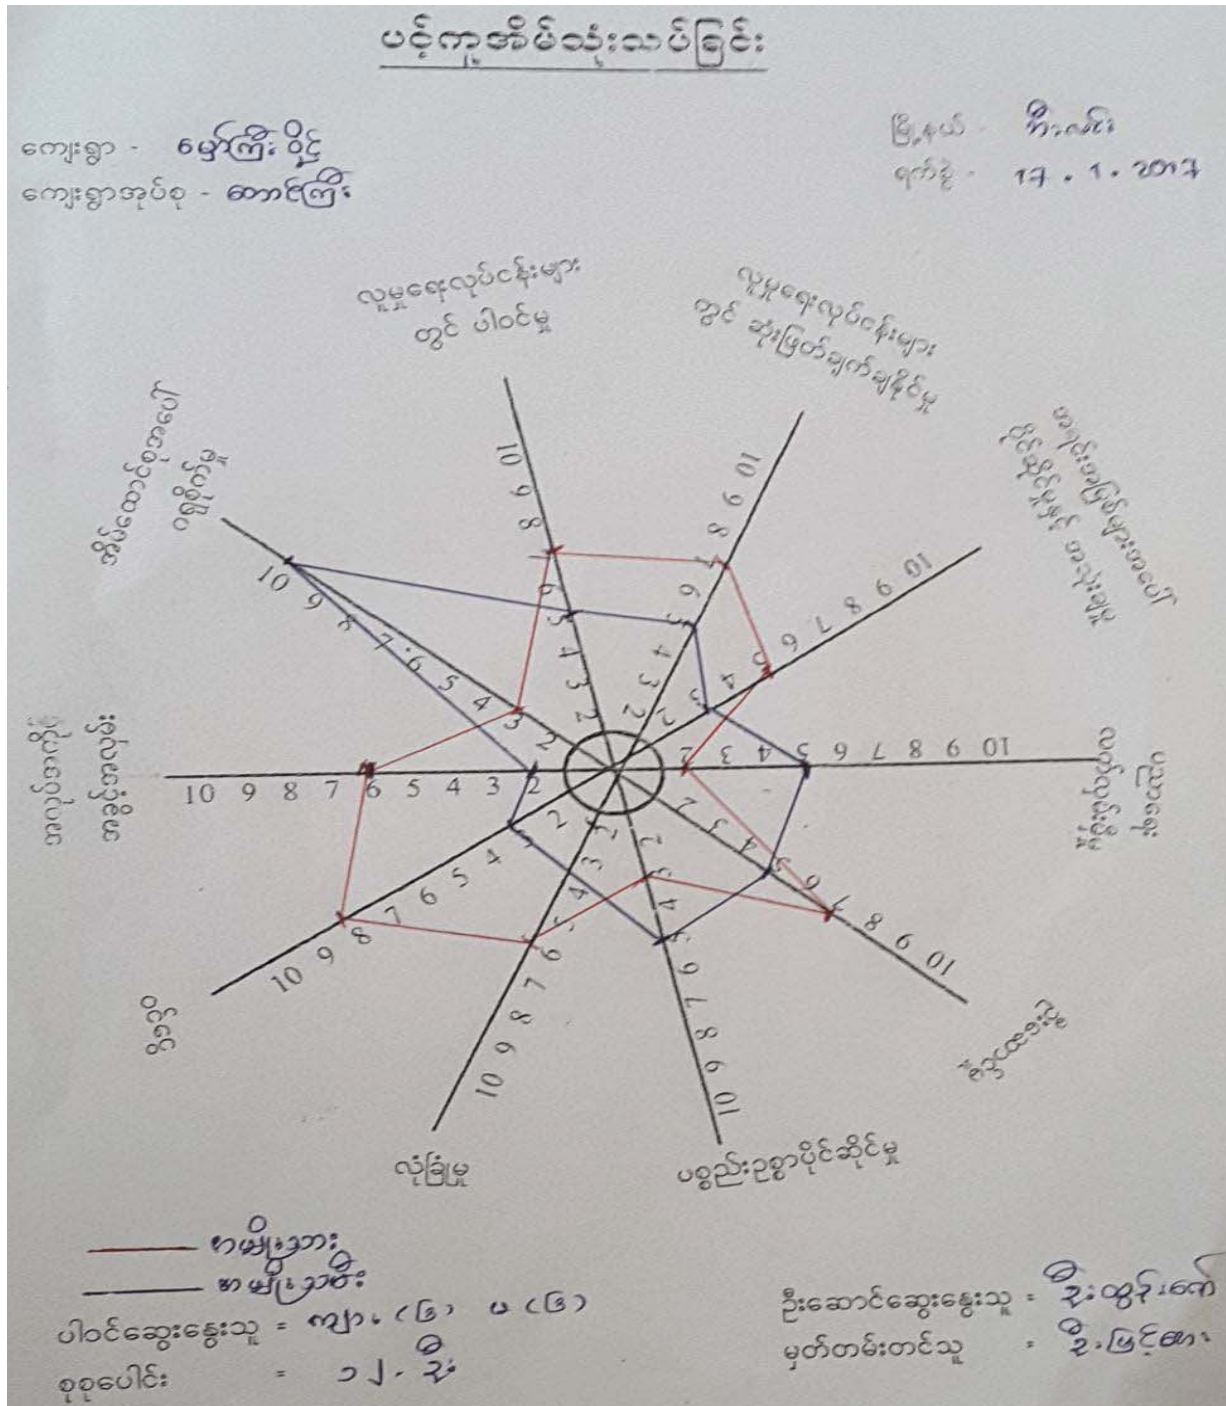 ပင့်ကူအိမ်သုံးသပ်ခြင်း
ကျေးရွာ - မှော်ကြီးဝိုင်
ကျေးရွာအုပ်စု - တောင်ကြီး
မြို့နယ် - ဘီးလင်း
ရက်စွဲ - 17.1.2017
လူမှုရေးလုပ်ငန်းများ
တွင် ပါဝင်မှု
လူမှုရေးလုပ်ငန်းများ
တွင် ဆုံးဖြတ်ချက်ချနိုင်မှု
အရင်းအမြစ်များအပေါ်
ပိုင်ဆိုင်မှုနှင့် အသုံးချမှု
ပညာရေး
ပစ္စည်းဥစ္စာပိုင်ဆိုင်မှု
လုံခြုံမှု
ဝင်ငွေ
အိမ်ထောင်စုအပေါ်
10 9 8 7 6 5 4 3 2
10 9 8 7 6 5 4 3 2
10 9 8 7 6 5 4 3 2
10 9 8 7 6 5 4 3 2
10 9 8 7 6 5 4 3 2
10 9 8 7 6 5 4 3 2
10 9 8 7 6 5 4 3 2
10 9 8 7 6 5 4 3 2
10 9 8 7 6 5 4 3 2
10 9 8 7 6 5 4 3 2
အမျိုးသား
အမျိုးသမီး
ပါဝင်ဆွေးနွေးသူ = ကျား (၆) မ (၆)
စုစုပေါင်း = ၁၂ ဦး
ဦးဆောင်ဆွေးနွေးသူ = ဦးထွန်းကျော်
မှတ်တမ်းတင်သူ = ဦး